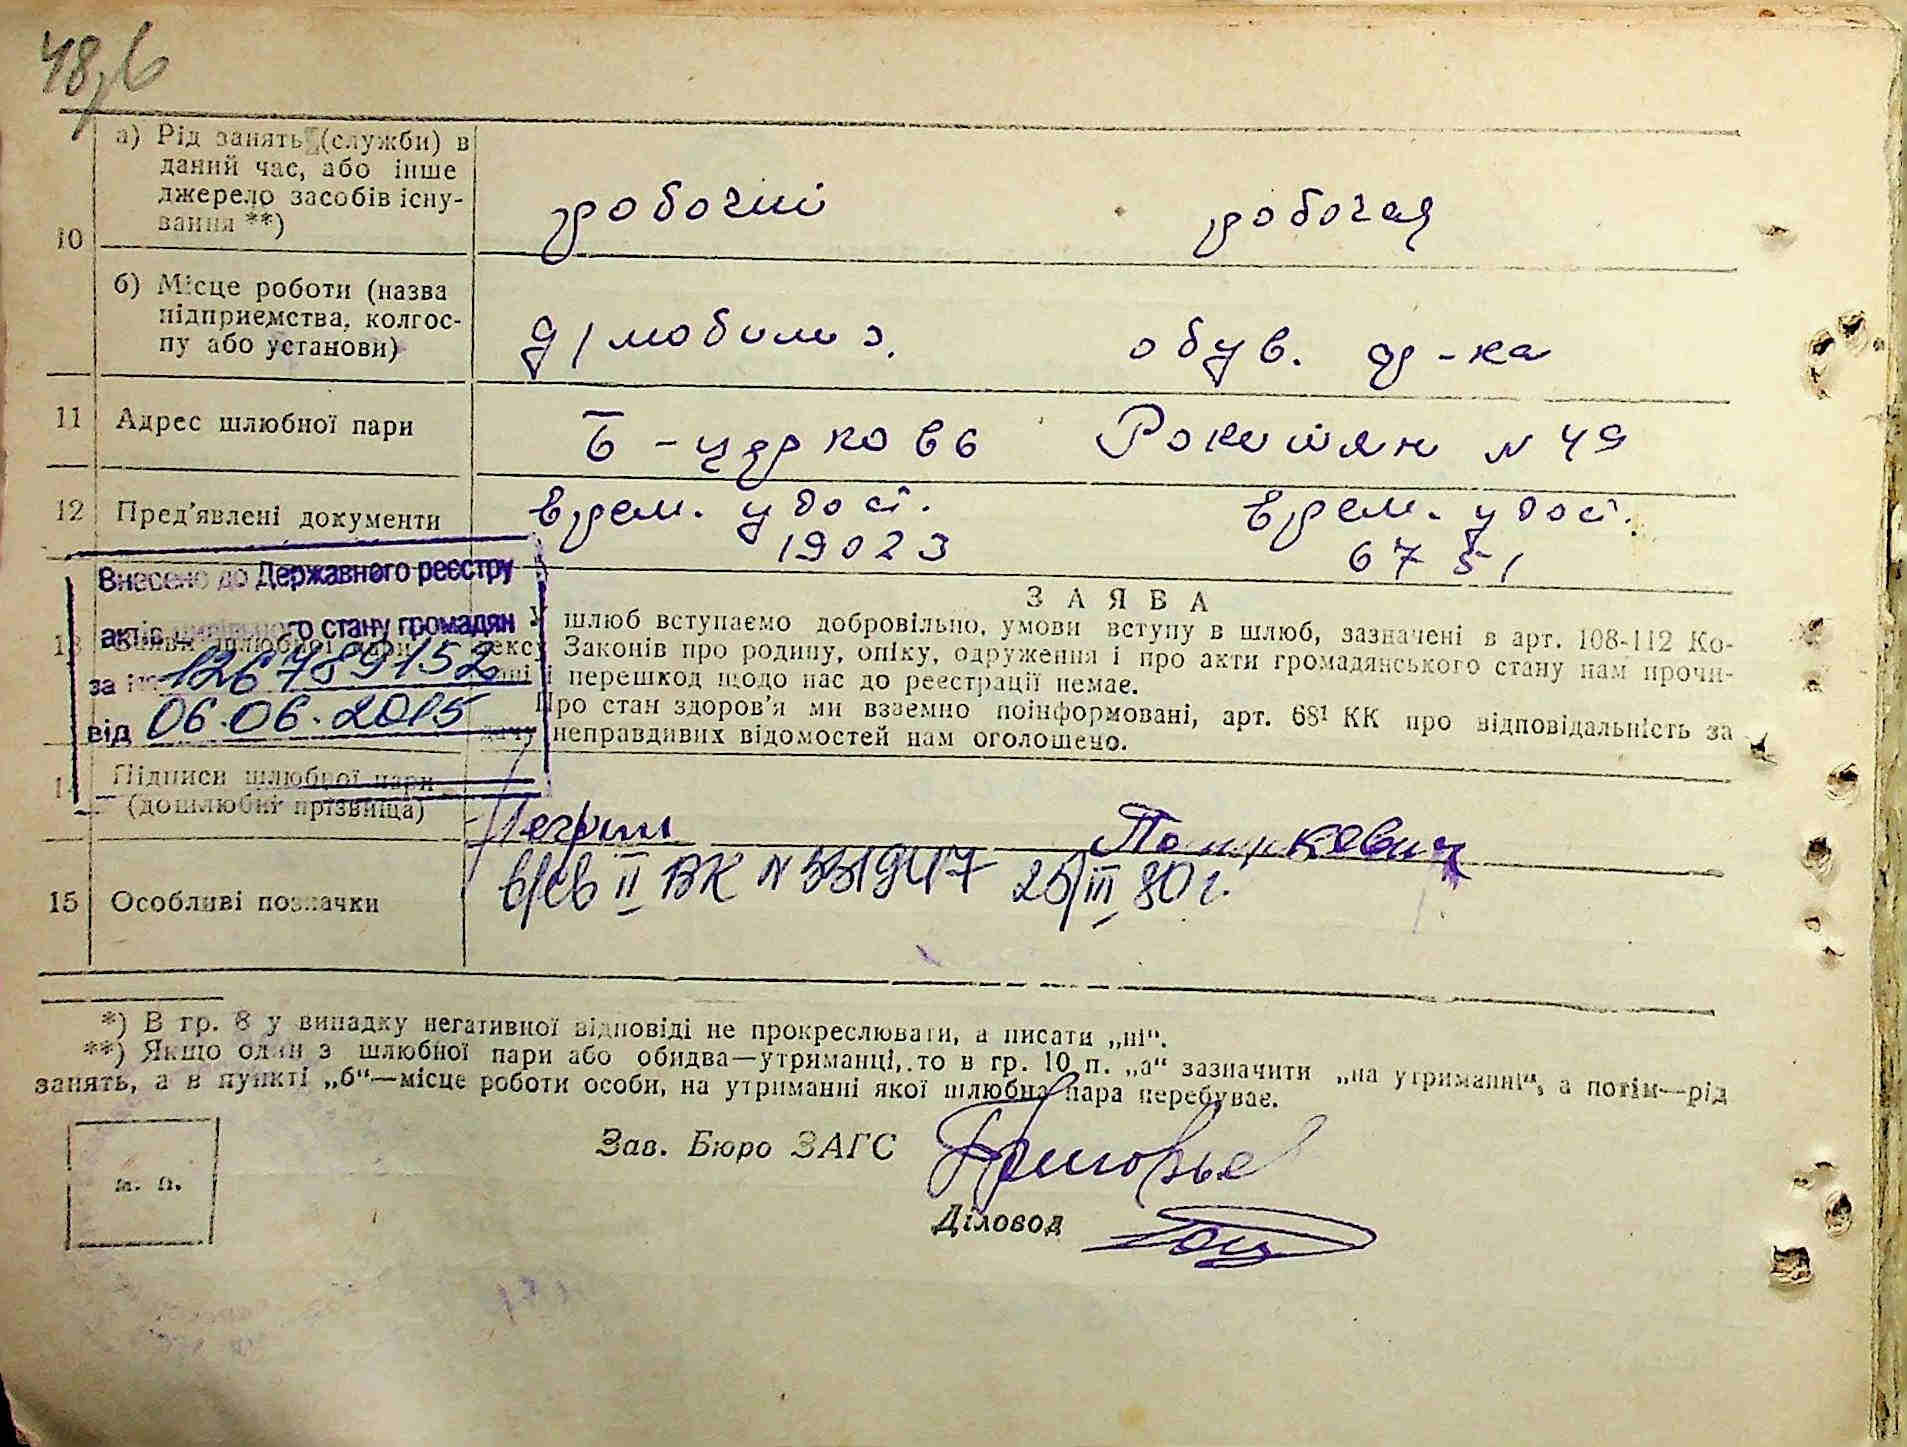 48,6
а) Рід занять (служби) в
даний час, або інше
джерело засобів існу-
вання **)
робочий робочая
10
б) Місце роботи (назва
підприємства, колгос-
пу або установи)
д/мобилиз. обув. ф-ка
11 Адрес шлюбної пари
Б-церковь Рокитян N 49
12 Пред'явлені документи
врем. удост. врем. удост.
19023 6751
Внесено до Державного реєстру
актів цивільного стану громадян
за № 126789152
від 06.06.2015
13
ЗАЯВА
У шлюб вступаємо добровільно, умови вступу в шлюб, зазначені в арт. 108-112 Ко-
дексу Законів про родину, опіку, одруження і про акти громадянського стану нам прочи-
тані і перешкод щодо нас до реєстрації немає.
Про стан здоров'я ми взаємно поінформовані, арт. 68¹ КК про відповідальність за
дачу неправдивих відомостей нам оголошено.
14 Підписи шлюбної пари
(дошлюбні прізвіща)
15 Особливі позначки
в/св II ВК N 531947 25/III 80 г.
*) В гр. 8 у випадку негативної відповіді не прокреслювати, а писати „ні“.
**) Якщо один з шлюбної пари або обидва—утриманці, то в гр. 10 п. „а“ зазначити „на утриманні“, а потім—рід
занять, а в пункті „б“—місце роботи особи, на утриманні якої шлюбна пара перебуває.
м. п.
Зав. Бюро ЗАГС
Діловод